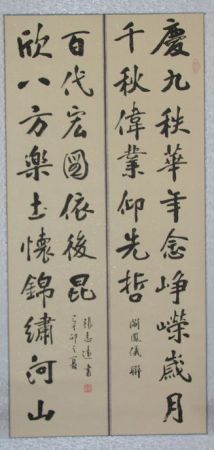 慶九秩華年念崢嶸歲月
千秋偉業仰先哲
關鳳儀聯
欣八方樂土懷錦繡河山
百代宏圖依後昆
張志遠書
辛卯之夏